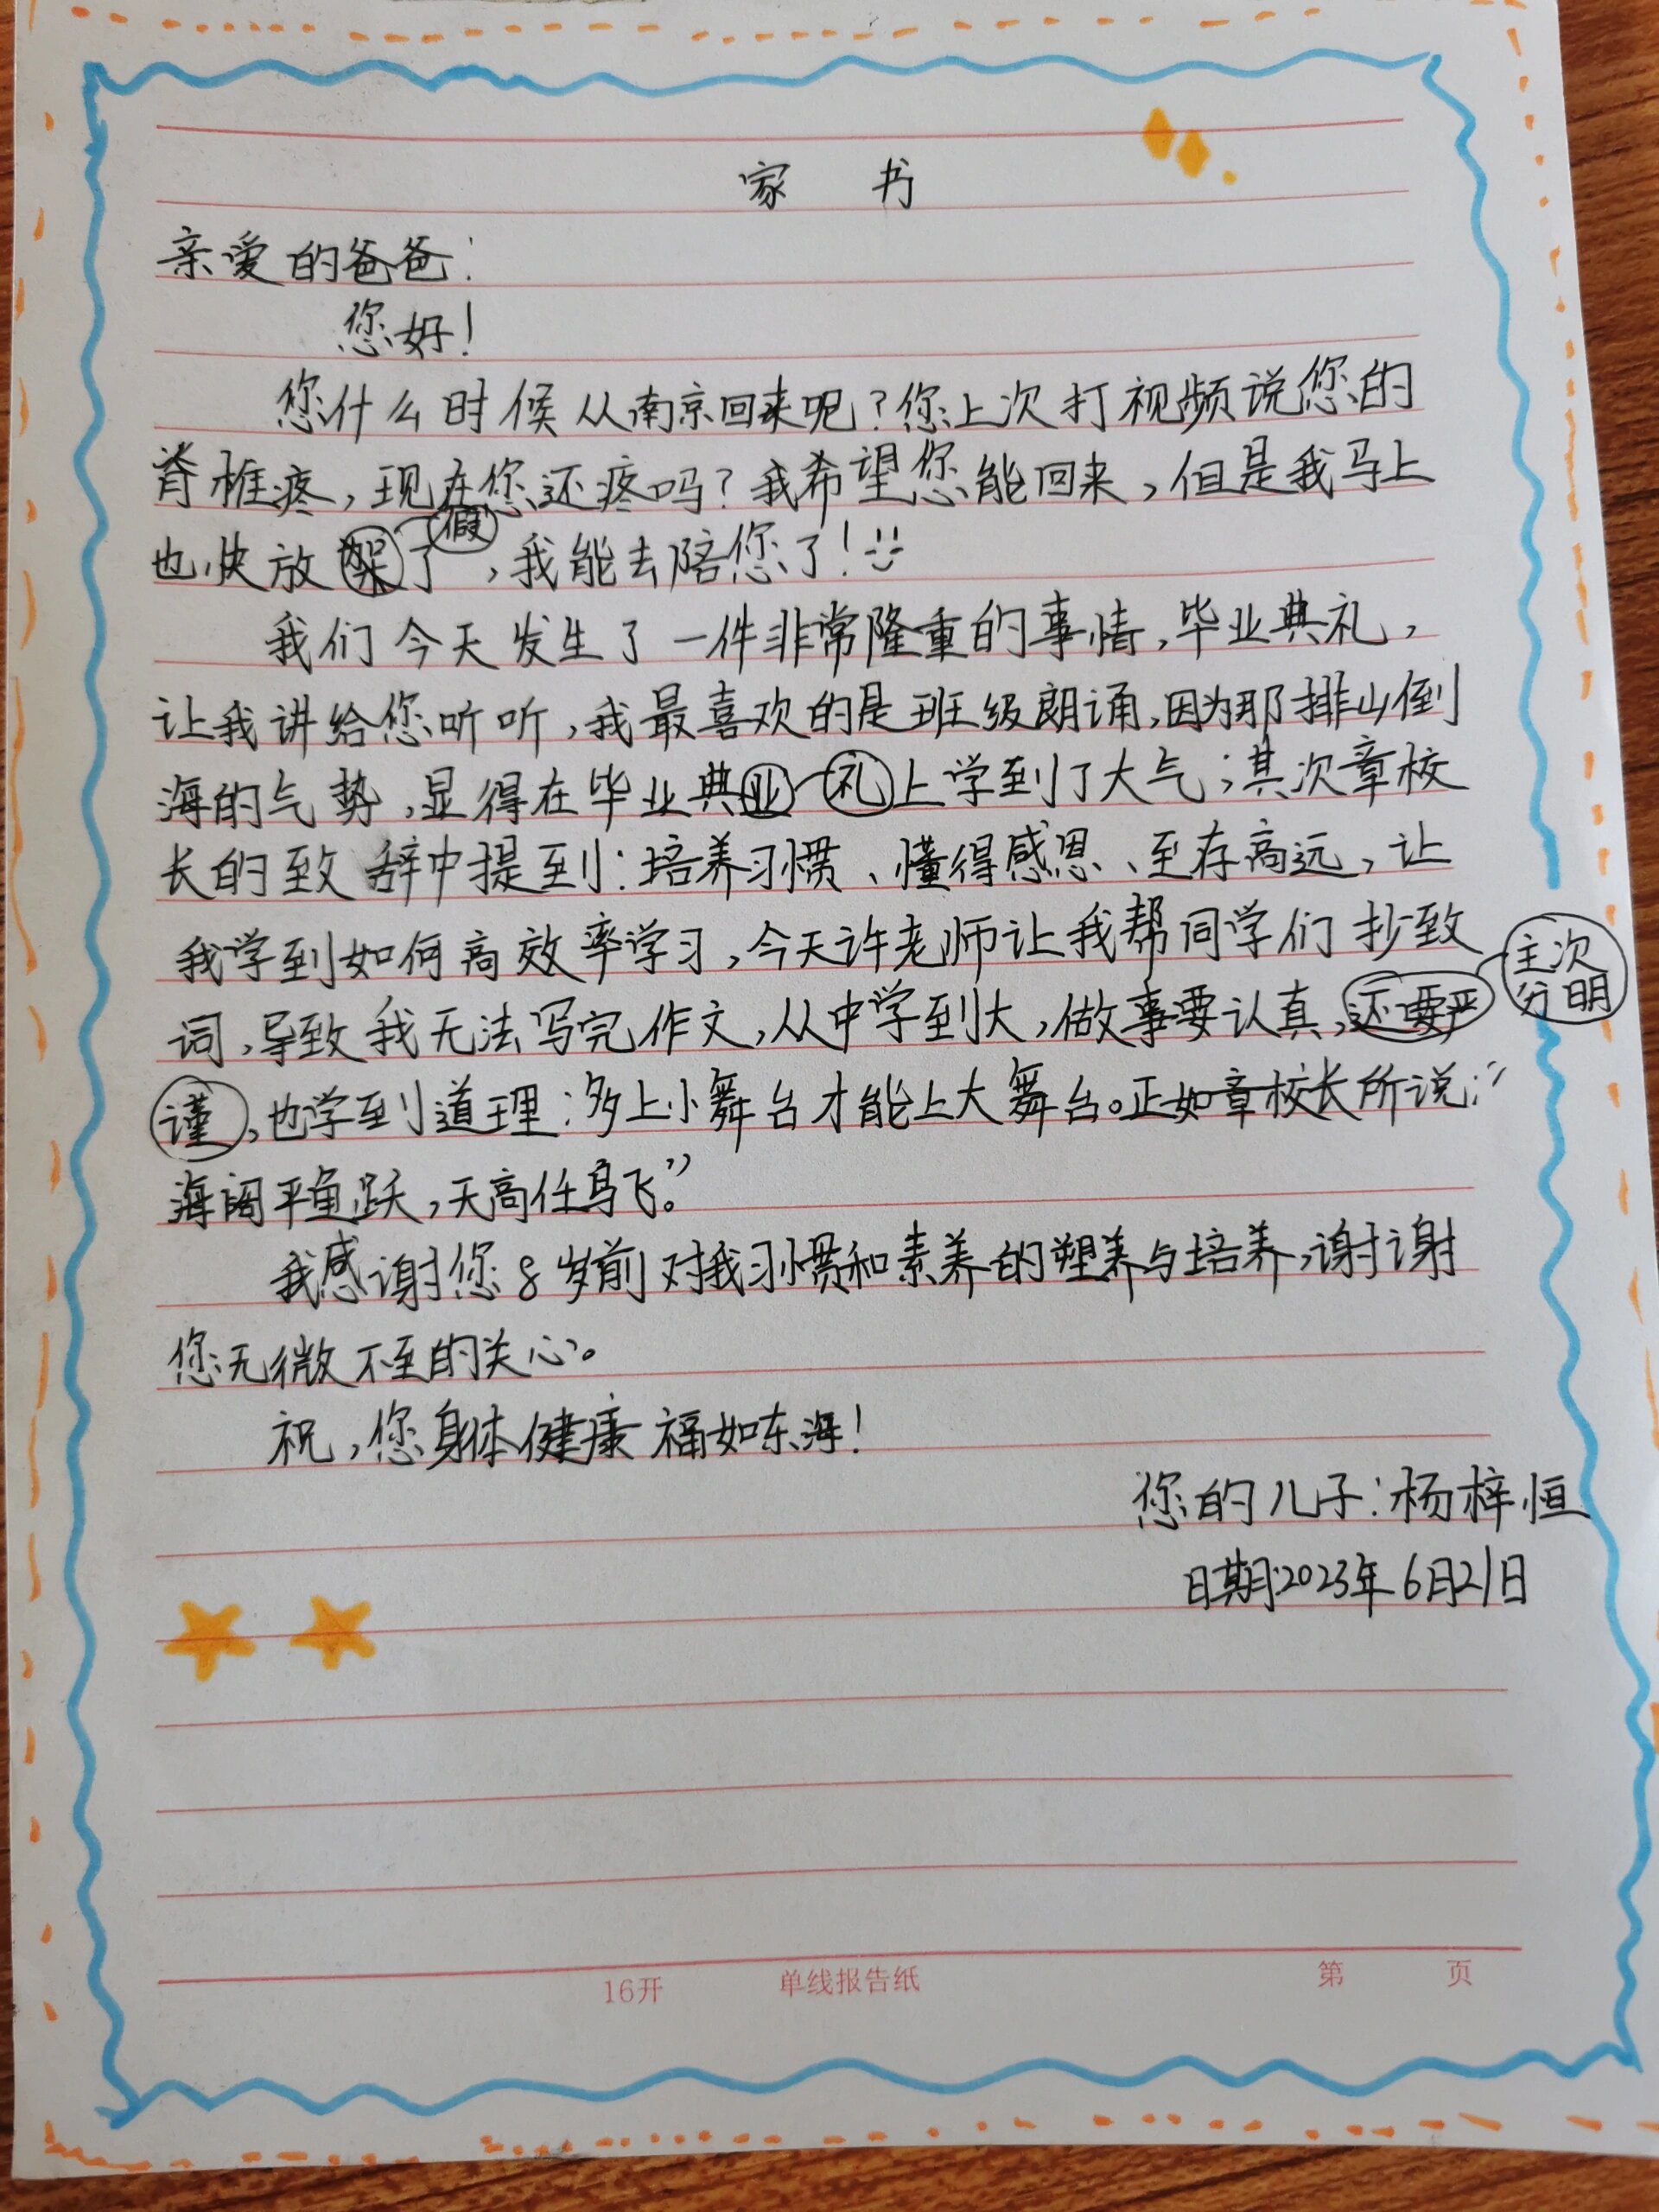 家 书
亲爱的爸爸:
您好!
您什么时候从南京回来呢?您上次打视频说您的
脊椎疼,现在您还疼吗?我希望您能回来,但是我马上
假
也快放架了,我能去陪您了!
我们今天发生了一件非常隆重的事情,毕业典礼,
让我讲给您听听,我最喜欢的是班级朗诵,因为那排山倒
海的气势,显得在毕业典业礼上学到了大气;其次章校
长的致辞中提到:培养习惯、懂得感恩、至存高远,让
我学到如何高效率学习,今天许老师让我帮同学们抄致
主次
分明
词,导致我无法写完作文,从中学到大,做事要认真,还要严
谨,也学到道理:多上小舞台才能上大舞台。正如章校长所说:“
海阔平鱼跃,天高任鸟飞。”
我感谢您8岁前对我习惯和素养的塑养与培养,谢谢
您无微不至的关心。
祝,您身体健康福如东海!
您的儿子:杨梓恒
日期:2023年6月21日
16开 单线报告纸 第 页